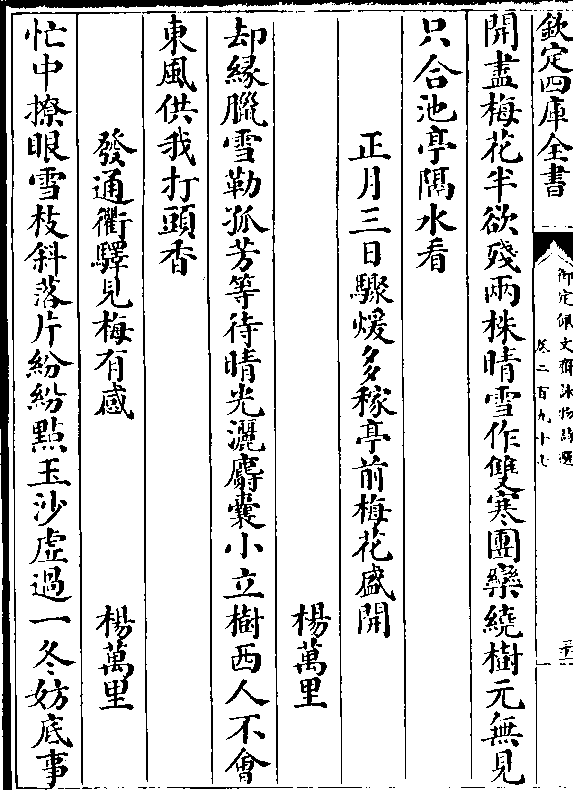 欽定四庫全書
御定佩文齋詠物詩選
卷二百九十七
開盡梅花半欲殘兩株晴雪作雙寒團欒繞樹元無見
只合池亭隔水看
正月三日驟煖多稼亭前梅花盛開
楊萬里
却緣臘雪勒孤芳等待晴光灑麝囊小立樹西人不會
東風供我打頭香
發通衢驛見梅有感
楊萬里
忙中撩眼雪枝斜落片紛紛點玉沙虛過一冬妨底事